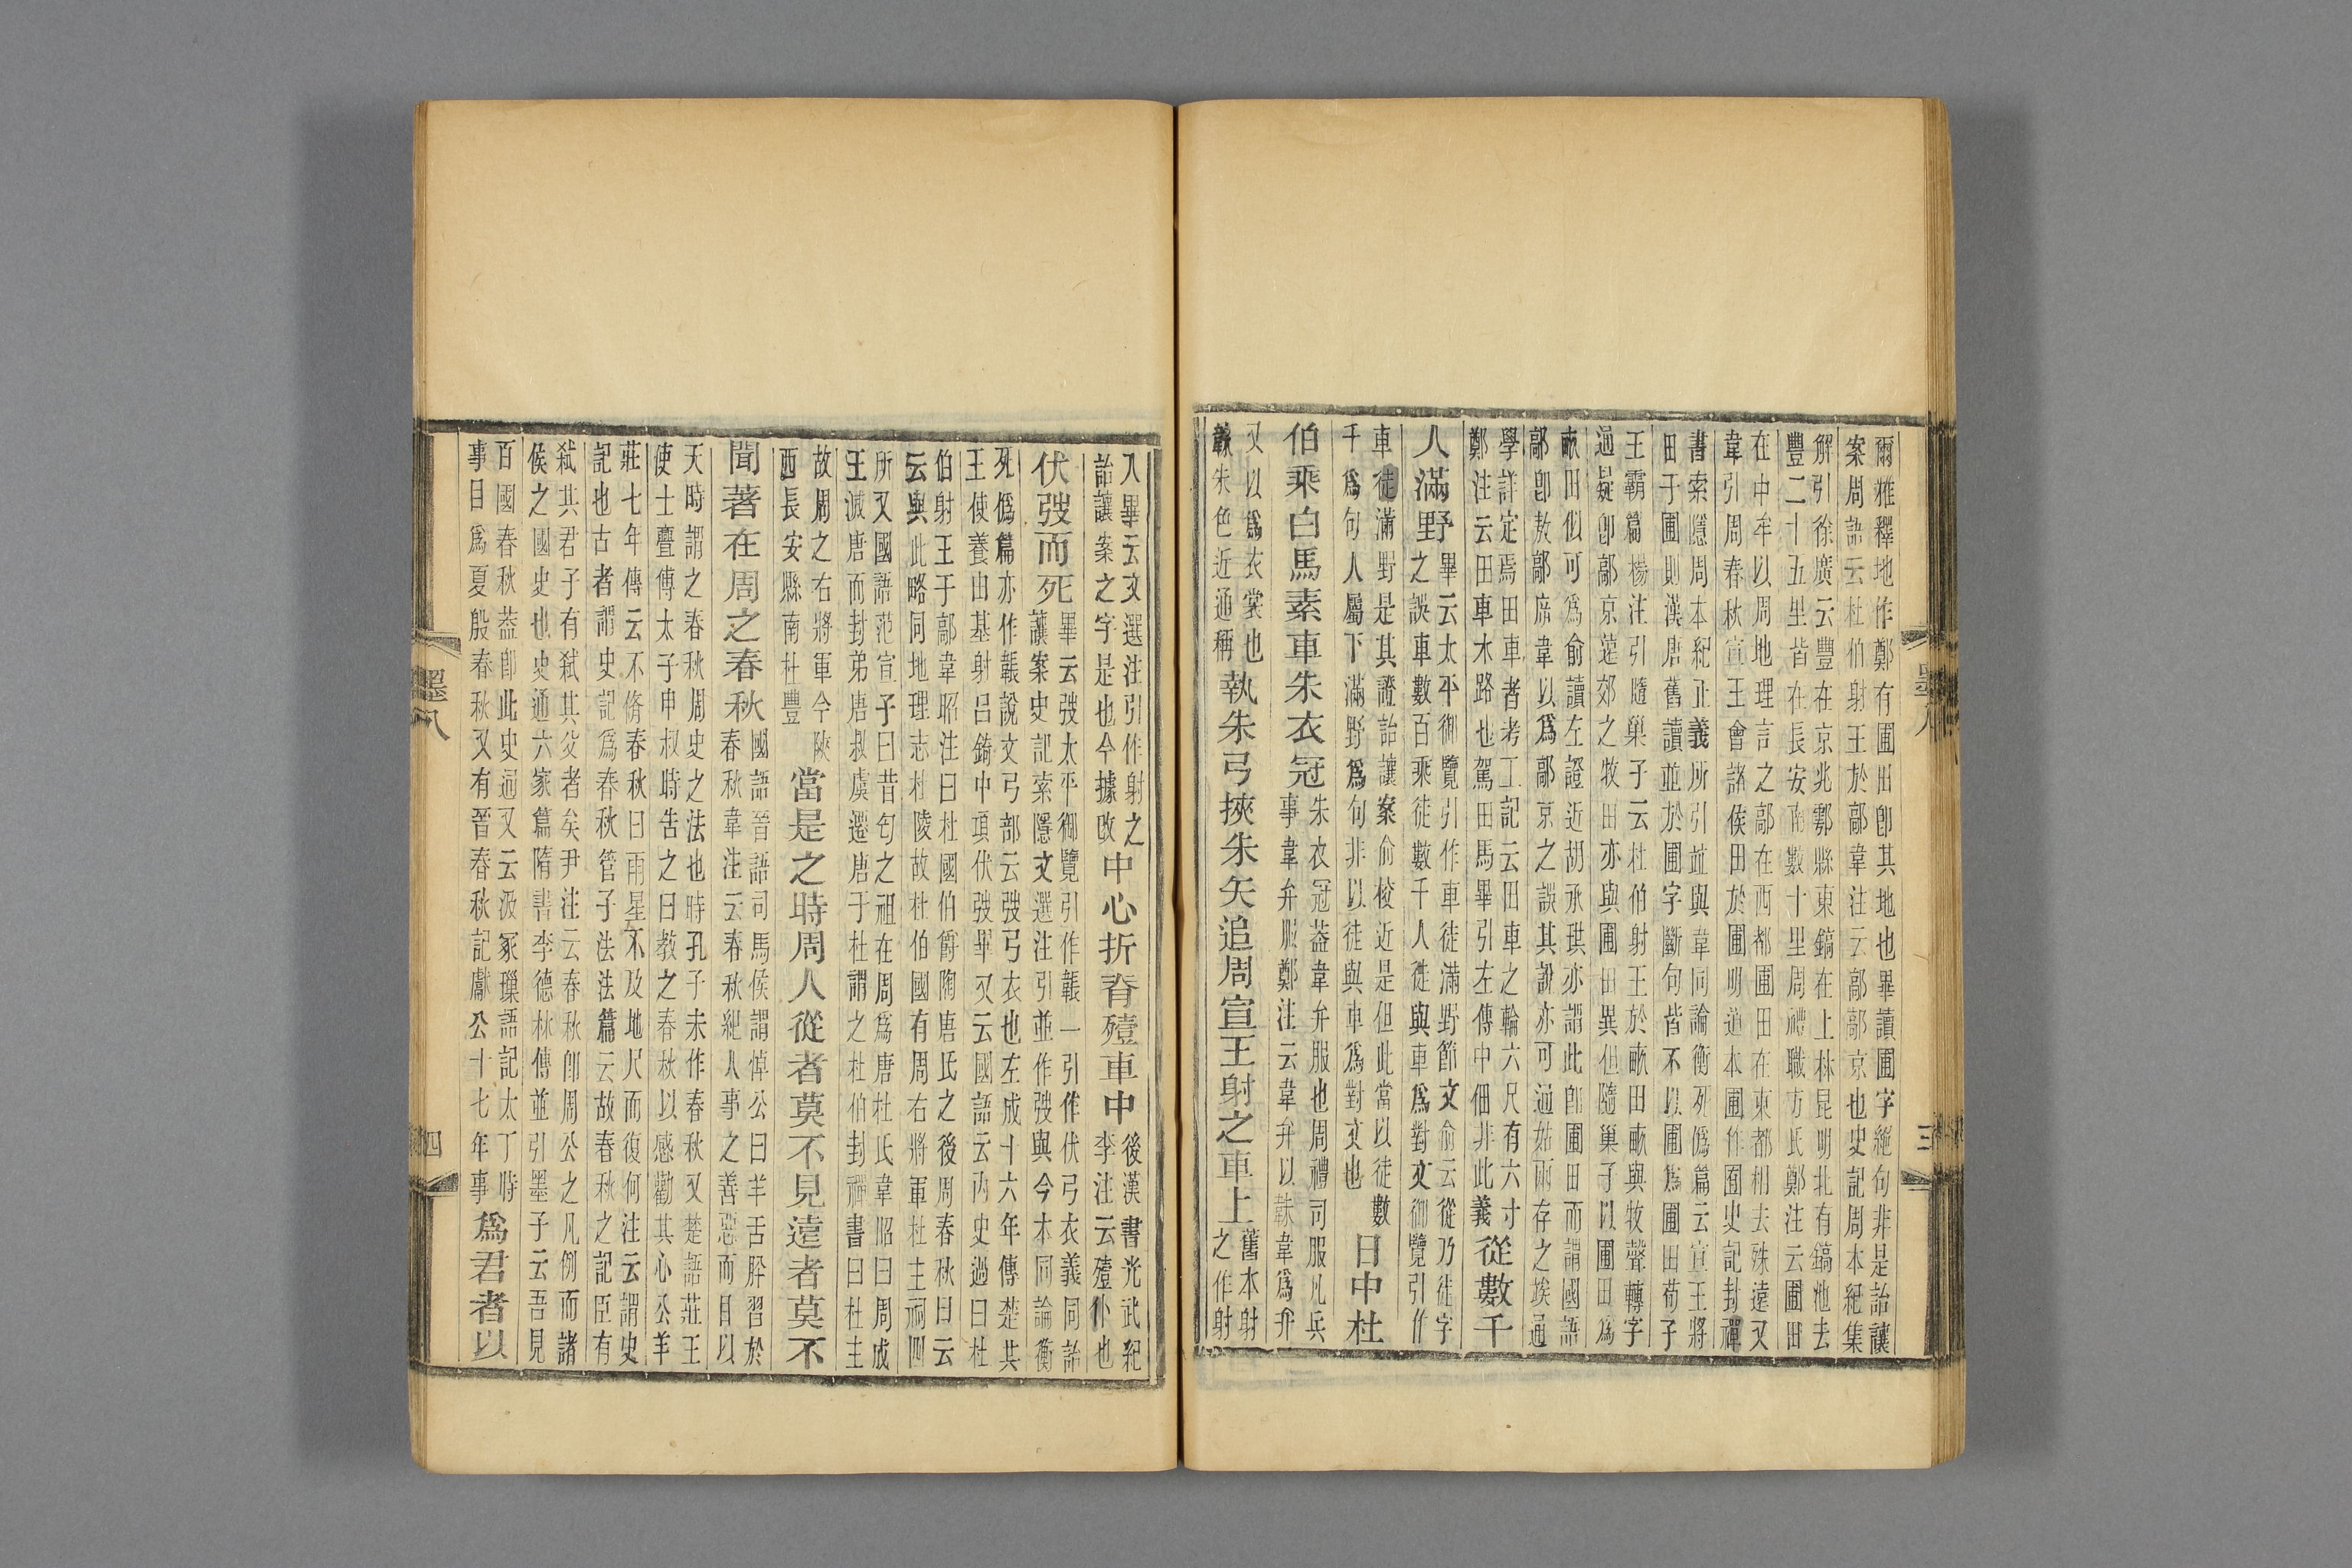 爾雅釋地作鄭有圃田卽其地也畢讀圃字絕句非是詒讓
案周語云杜伯射王於鄗韋注云鄗鄗京也史記周本紀集
解引徐廣云豐在京兆鄠縣東鎬在上林昆明北有鎬池去
豐二十五里皆在長安南數十里周禮職方氏鄭注云圃田
在中牟以周地理言之鄗在西都圃田在東都相去殊遠又
韋引周春秋宣王會諸侯田於圃明道本圃作囿史記封禪
書索隱周本紀正義所引並與韋同論衡死僞篇云宣王將
田于圃則漢唐舊讀並於圃字斷句皆不以圃爲圃田荀子
王霸篇楊注引隨巢子云杜伯射王於畝田畝與牧聲轉字
通疑卽鄗京遠郊之牧田亦與圃田異但隨巢子以圃田爲
畝田似可爲俞讀左證近胡承珙亦謂此卽圃田而謂國語
鄗卽敖鄗席韋以爲鄗京之誤其說亦可通姑兩存之埃通
學詳定焉田車者考工記云田車之輪六尺有六寸
鄭注云田車木路也駕田馬畢引左傳中佃非此義
從數千
人滿野
畢云太平御覽引作車徒滿野節文俞云從乃徒字
之誤車數百乘徒數千人徒與車爲對文御覽引作
車徒滿野是其證詒讓案俞校近是但此當以徒數
千爲句人屬下滿野爲句非以徒與車爲對文也
日中杜
伯乘白馬素車朱衣冠
朱衣冠蓋韋弁服也周禮司服凡兵
事韋弁服鄭注云韋弁以韎韋爲弁
又以爲衣裳也
韎朱色近通稱
執朱弓挾朱矢追周宣王射之車上
舊本射
之作射
墨八
三
入畢云文選注引作射之
詒讓案之字是也今據改
中心折脊殪車中
後漢書光武紀
李注云殪仆也
伏弢而死
畢云弢太平御覽引作韔一引作伏弓衣義同詒
讓案史記索隱文選注引並作弢與今本同論衡
死僞篇亦作韔說文弓部云弢弓衣也左成十六年傳楚共
王使養由基射呂錡中項伏弢畢又云國語云內史過曰杜
伯射王于鄗韋昭注曰杜國伯爵陶唐氏之後周春秋曰云
云與此略同地理志杜陵故杜伯國有周右將軍杜主祠四
所又國語范宣子曰昔匄之祖在周爲唐杜氏韋昭曰周成
王滅唐而封弟唐叔虞遷唐于杜謂之杜伯封禪書曰杜主
故周之右將軍今陝
西長安縣南杜豐
當是之時周人從者莫不見遠者莫不
聞著在周之春秋
國語晉語司馬侯謂悼公曰羊舌肸習於
春秋韋注云春秋紀人事之善惡而目以
天時謂之春秋周史之法也時孔子未作春秋又楚語莊王
使士亹傅太子申叔時告之曰教之春秋以感勸其心公羊
莊七年傳云不脩春秋曰雨星不及地尺而復何注云謂史
記也古者謂史記爲春秋管子法法篇云故春秋之記臣有
弒其君子有弒其父者矣尹注云春秋卽周公之凡例而諸
侯之國史也史通六家篇隋書李德林傳並引墨子云吾見
百國春秋蓋卽此史通又云汲冢璅語記太丁時
事目爲夏殷春秋又有晉春秋記獻公十七年事
爲君者以
墨八
四